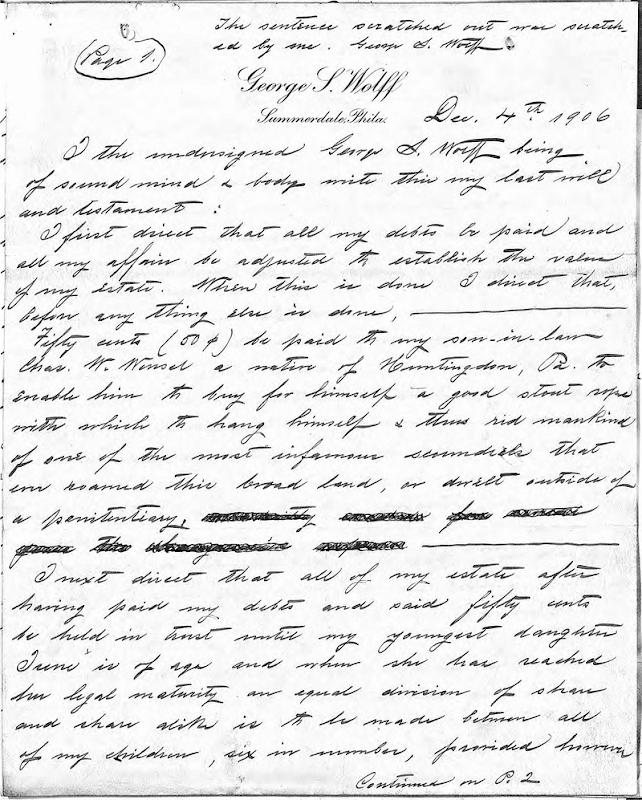 The sentence scratched out was scratch-
ed by me. George S. Wolff
Page 1.
George S. Wolff
Summerdale, Phila.
Dec. 4th 1906
I the undersigned George S. Wolff being
of sound mind & body write this my last will
and testament :
I first direct that all my debts be paid and
all my affairs be adjusted to establish the value
of my estate. When this is done I direct that,
before any thing else is done,
Fifty cents (50¢) be paid to my son-in-law
Chas. W. Wensel a native of Huntingdon, Pa. to
enable him to buy for himself a good stout rope
with which to hang himself & thus rid mankind
of one of the most infamous scoundrels that
ever roamed this broad land, or dwelt outside of
a penitentiary,
I next direct that all of my estate after
having paid my debts and said fifty cents
be held in trust until my youngest daughter
Irene is of age and when she has reached
her legal maturity an equal division of share
and share alike is to be made between all
of my children, six in number, provided however
Continued on P. 2